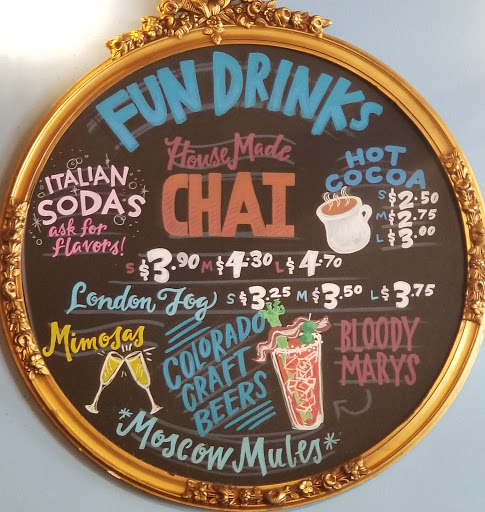 FUN DRINKS
House Made
CHAI
ITALIAN
SODAS
ask for
flavors!
HOT
COCOA
S $2.50
M $2.75
L $3.00
S $3.90 M $4.30 L $4.70
London Fog S $3.25 M $3.50 L $3.75
Mimosas
COLORADO
CRAFT
BEERS
BLOODY
MARYS
*Moscow Mules*